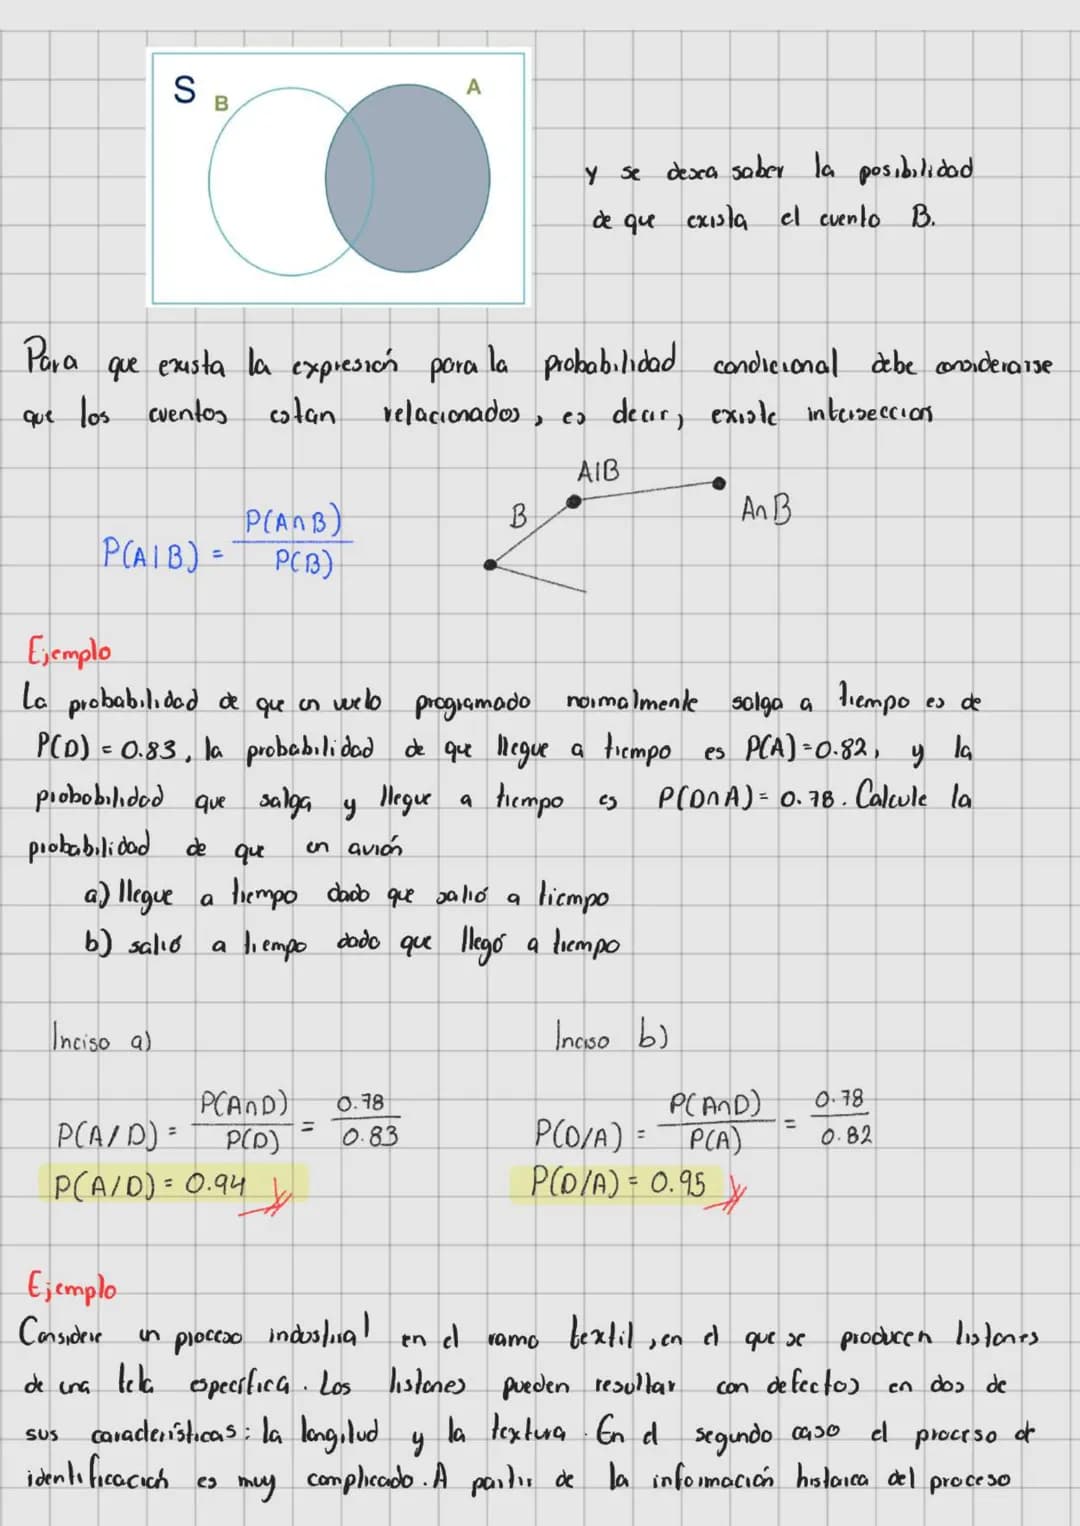 S
B
A
y se desea saber la posibilidad
de que exista el evento B.
Para que exista la expresión para la probabilidad condicional debe considerarse
que los eventos estan relacionados, es decir, existe interseccion
P(A|B) = P(A∩B) / P(B)
B
A|B
A∩B
Ejemplo
La probabilidad de que un vuelo programado normalmente salga a tiempo es de
P(D) = 0.83, la probabilidad de que llegue a tiempo es P(A) = 0.82, y la
probabilidad que salga y llegue a tiempo es P(D∩A) = 0.78. Calcule la
probabilidad de que un avión
a) llegue a tiempo dado que salió a tiempo
b) salió a tiempo dado que llegó a tiempo
Inciso a)
P(A/D) = P(A∩D) / P(D) = 0.78 / 0.83
P(A/D) = 0.94
Inciso b)
P(D/A) = P(A∩D) / P(A) = 0.78 / 0.82
P(D/A) = 0.95
Ejemplo
Considere un proceso industrial en el ramo textil, en el que se producen listones
de una tela específica. Los listones pueden resultar con defectos en dos de
sus características: la longitud y la textura. En el segundo caso el proceso de
identificación es muy complicado. A partir de la información historica del proceso